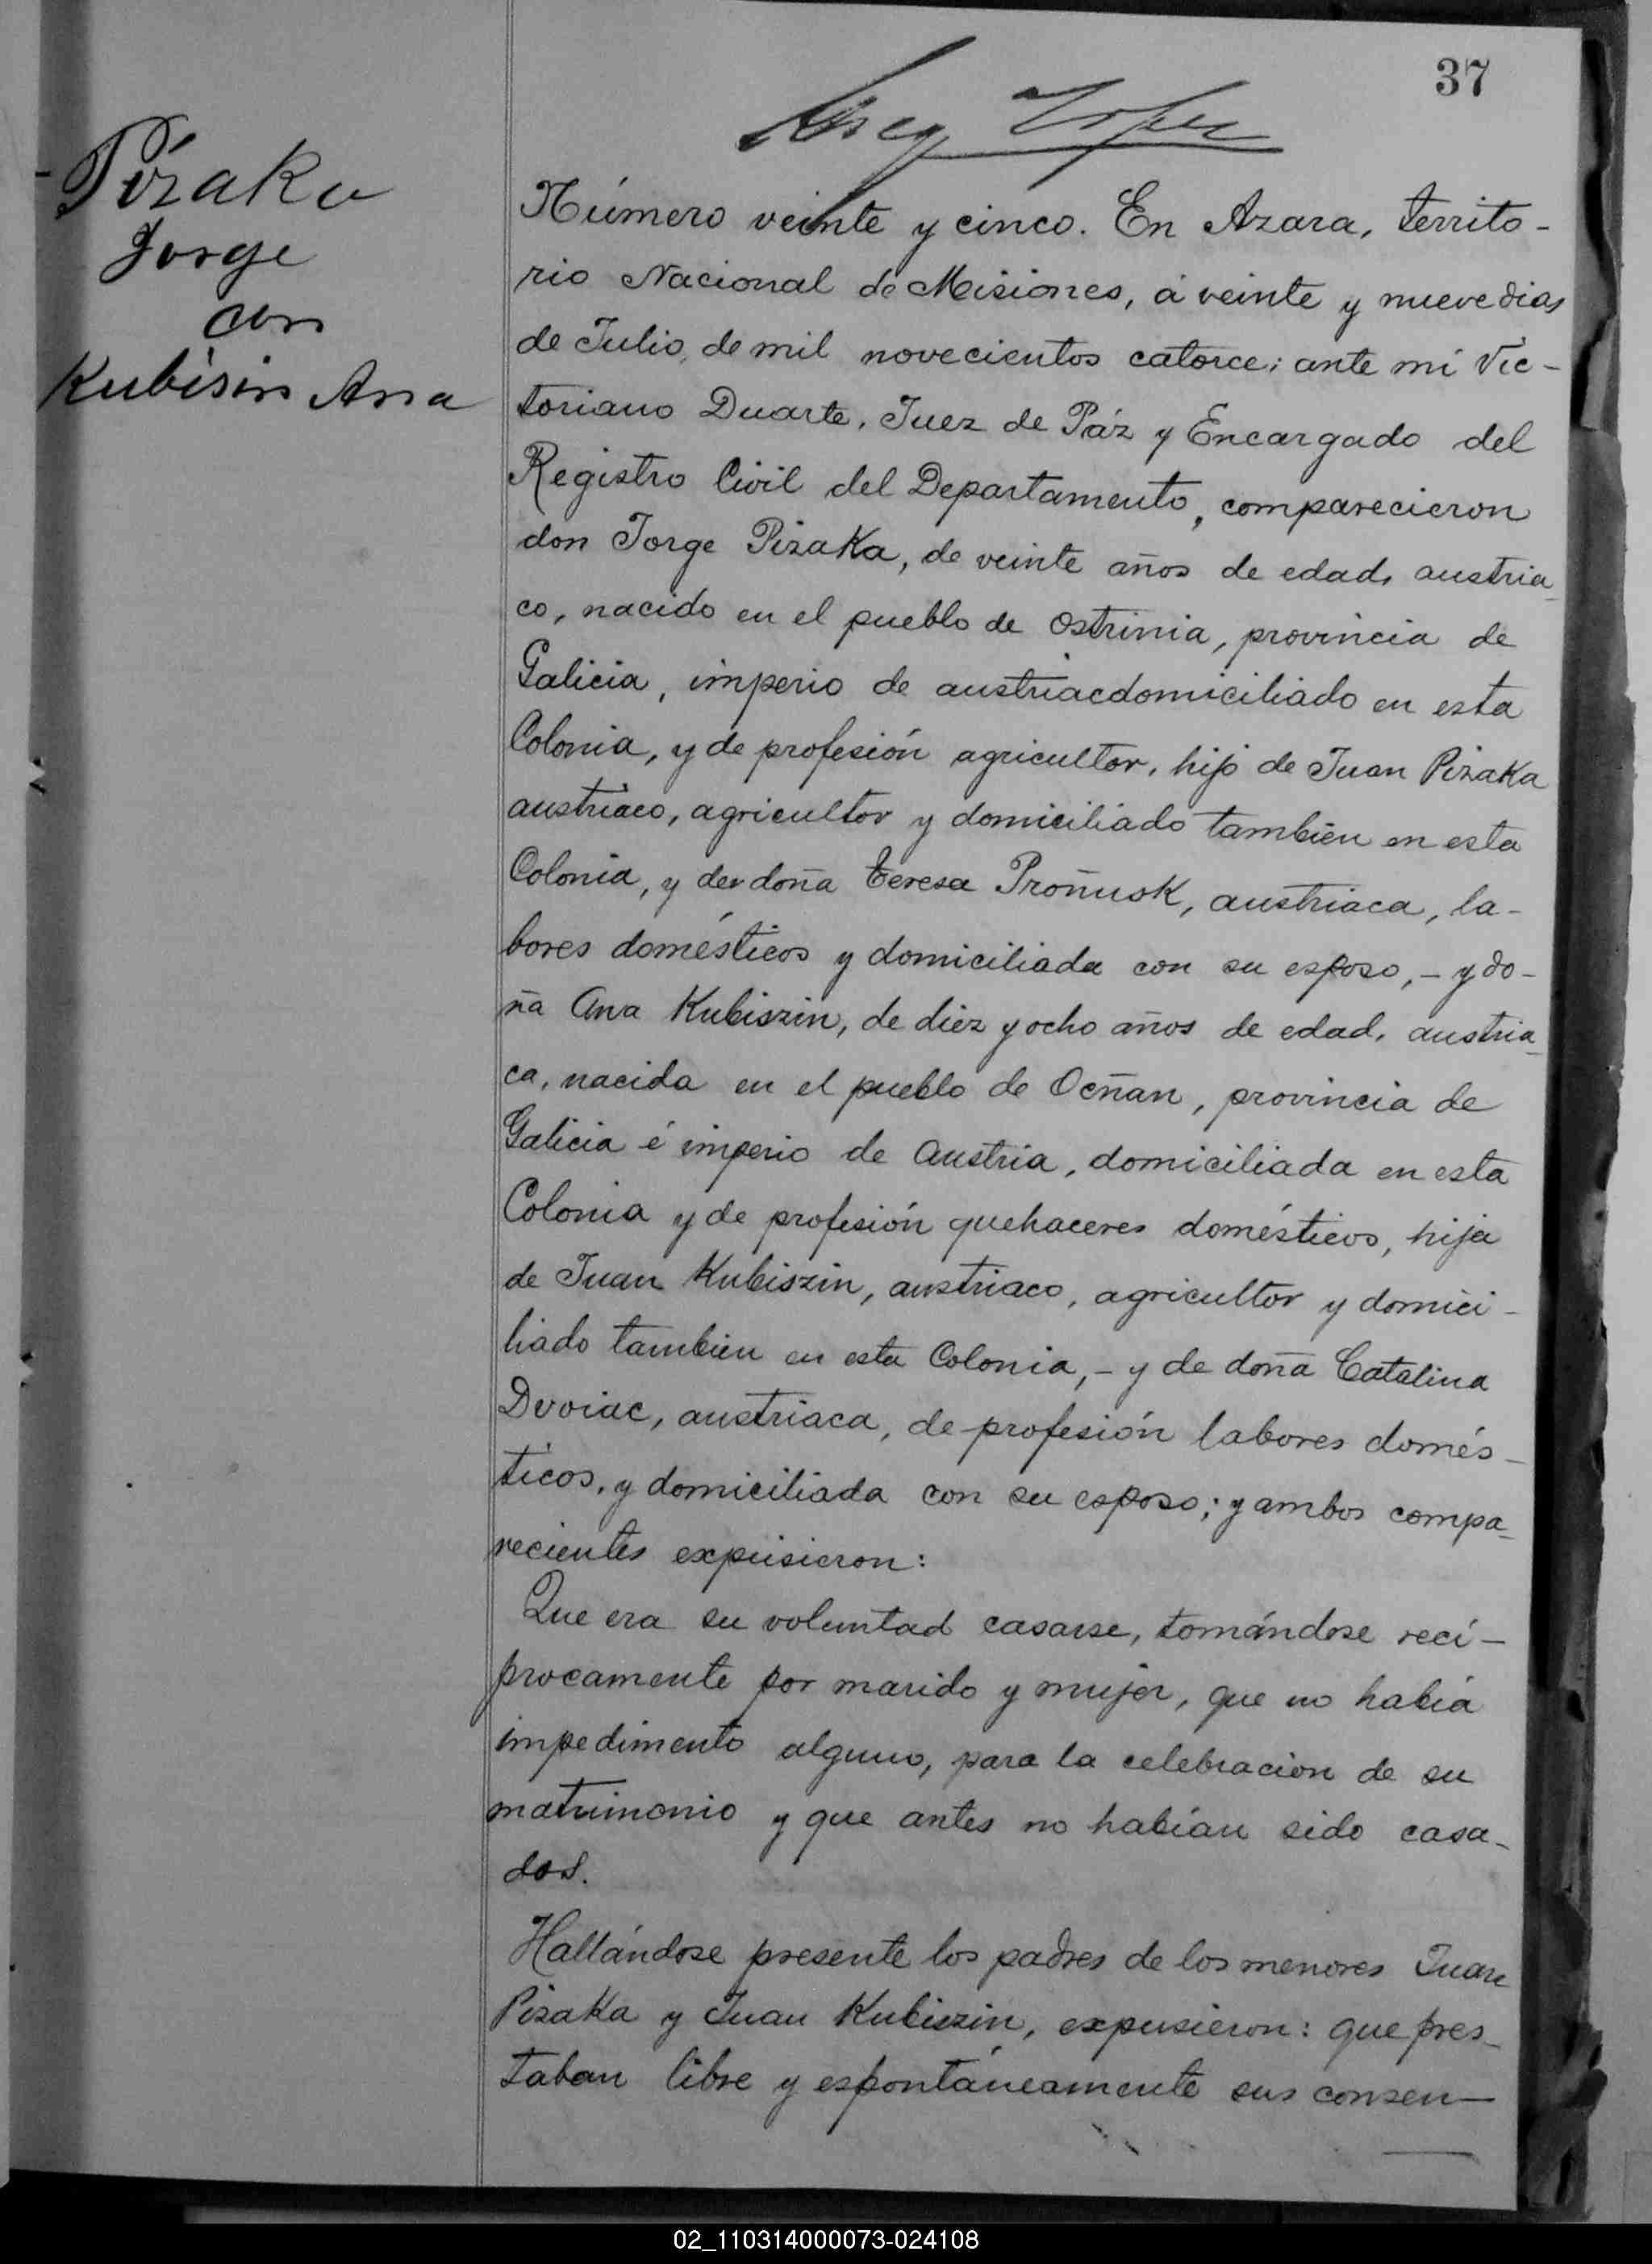 37
Pizaka
Jorge
con
Kubisin Ana
Número veinte y cinco. En Azara, territo-
rio Nacional de Misiones, á veinte y nueve dias
de Julio, de mil novecientos catorce; ante mí Vic-
toriano Duarte, Juez de Páz y Encargado del
Registro Civil del Departamento, comparecieron
don Jorge Pizaka, de veinte años de edad, austria_
co, nacido en el pueblo de Ostrinia, provincia de
Galicia, imperio de austriacdomiciliado en esta
Colonia, y de profesión agricultor, hijo de Juan Pizaka
austriaco, agricultor y domiciliado tambien en esta
Colonia, y de doña Teresa Proñusk, austriaca, la-
bores domésticos y domiciliada con su esposo, - y do-
ña Ana Kubiszin, de diez y ocho años de edad, austria_
ca, nacida en el pueblo de Ocñan, provincia de
Galicia é imperio de Austria, domiciliada en esta
Colonia y de profesión quehaceres domésticos, hija
de Juan Kubiszin, austriaco, agricultor y domici-
liado tambien en esta Colonia, - y de doña Catalina
Dvoiac, austriaca, de profesión labores domés-
ticos, y domiciliada con su esposo; y ambos compa_
recientes expusieron:
Que era su voluntad casarse, tomándose recí-
procamente por marido y mujer, que no había
impedimento alguno, para la celebracion de su
matrimonio y que antes no habían sido casa-
dos.
Hallándose presente los padres de los menores Juan
Pizaka y Juan Kubiszin, expusieron: que pres-
taban libre y espontáneamente sus consen-
02_110314000073-024108